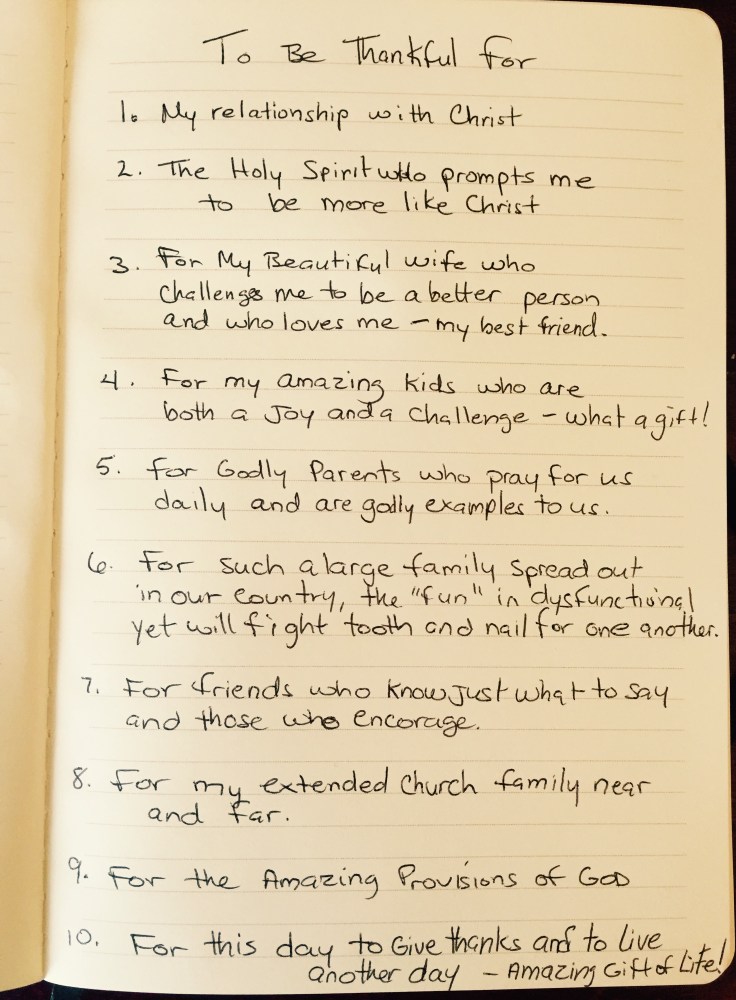 To Be Thankful For
1. My relationship with Christ
2. The Holy Spirit who prompts me
to be more like Christ
3. For My Beautiful wife who
challenges me to be a better person
and who loves me - my best friend.
4. For my amazing kids who are
both a Joy and a challenge - what a gift!
5. For Godly Parents who pray for us
daily and are godly examples to us.
6. For such a large family spread out
in our country, the "fun" in dysfunctional
yet will fight tooth and nail for one another.
7. For friends who know just what to say
and those who encorage.
8. For my extended Church family near
and far.
9. For the Amazing Provisions of God
10. For this day to Give thanks and to live
another day - Amazing Gift of Life!